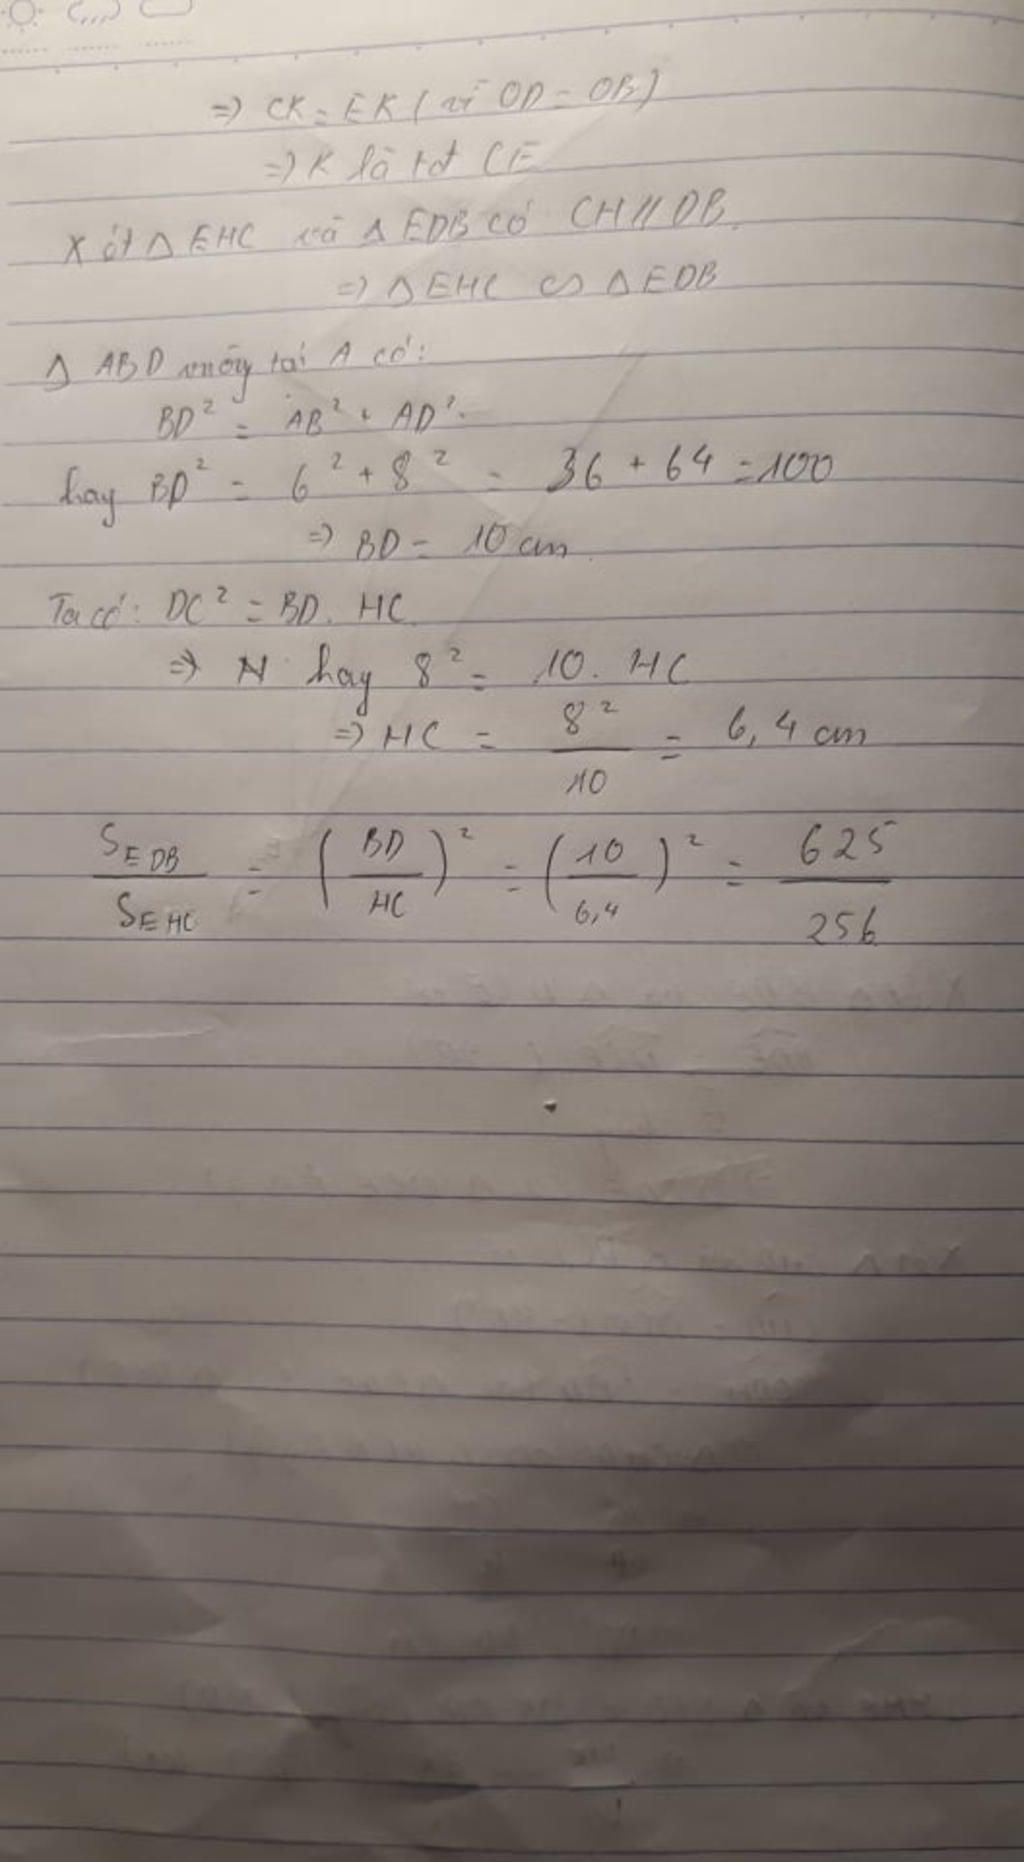 => CK = EK ( vì OD = OB )
=> K là tđ CE
Xét Δ EHC và Δ EDB có CH // DB.
=> Δ EHC ∽ Δ EDB
Δ ABD vuông tại A có:
BD² = AB² + AD².
hay BD² = 6² + 8² = 36 + 64 = 100
=> BD = 10 cm.
Ta có: DC² = BD. HC.
=> hay 8² = 10. HC
=> HC = 8²/10 = 6,4 cm
S_EDB/S_EHC = (BD/HC)² = (10/6,4)² = 625/256